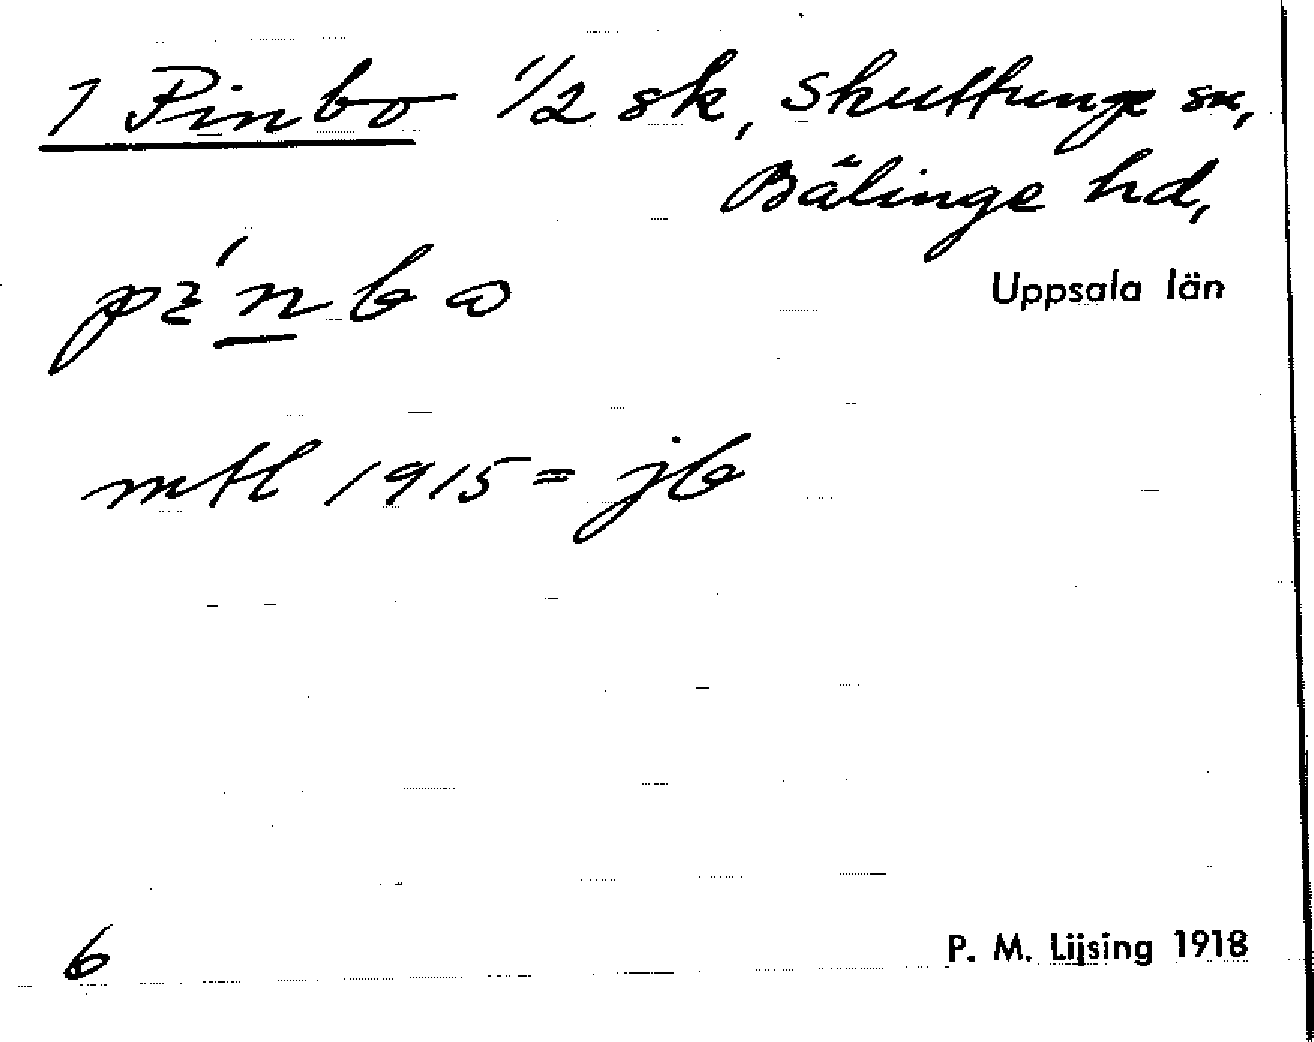 1 Pinbo 1/2 sk, Skuttunge sn,
Bälinge hd,
Uppsala län
mtl 1915 = jb
6
P. M. Lijsing 1918